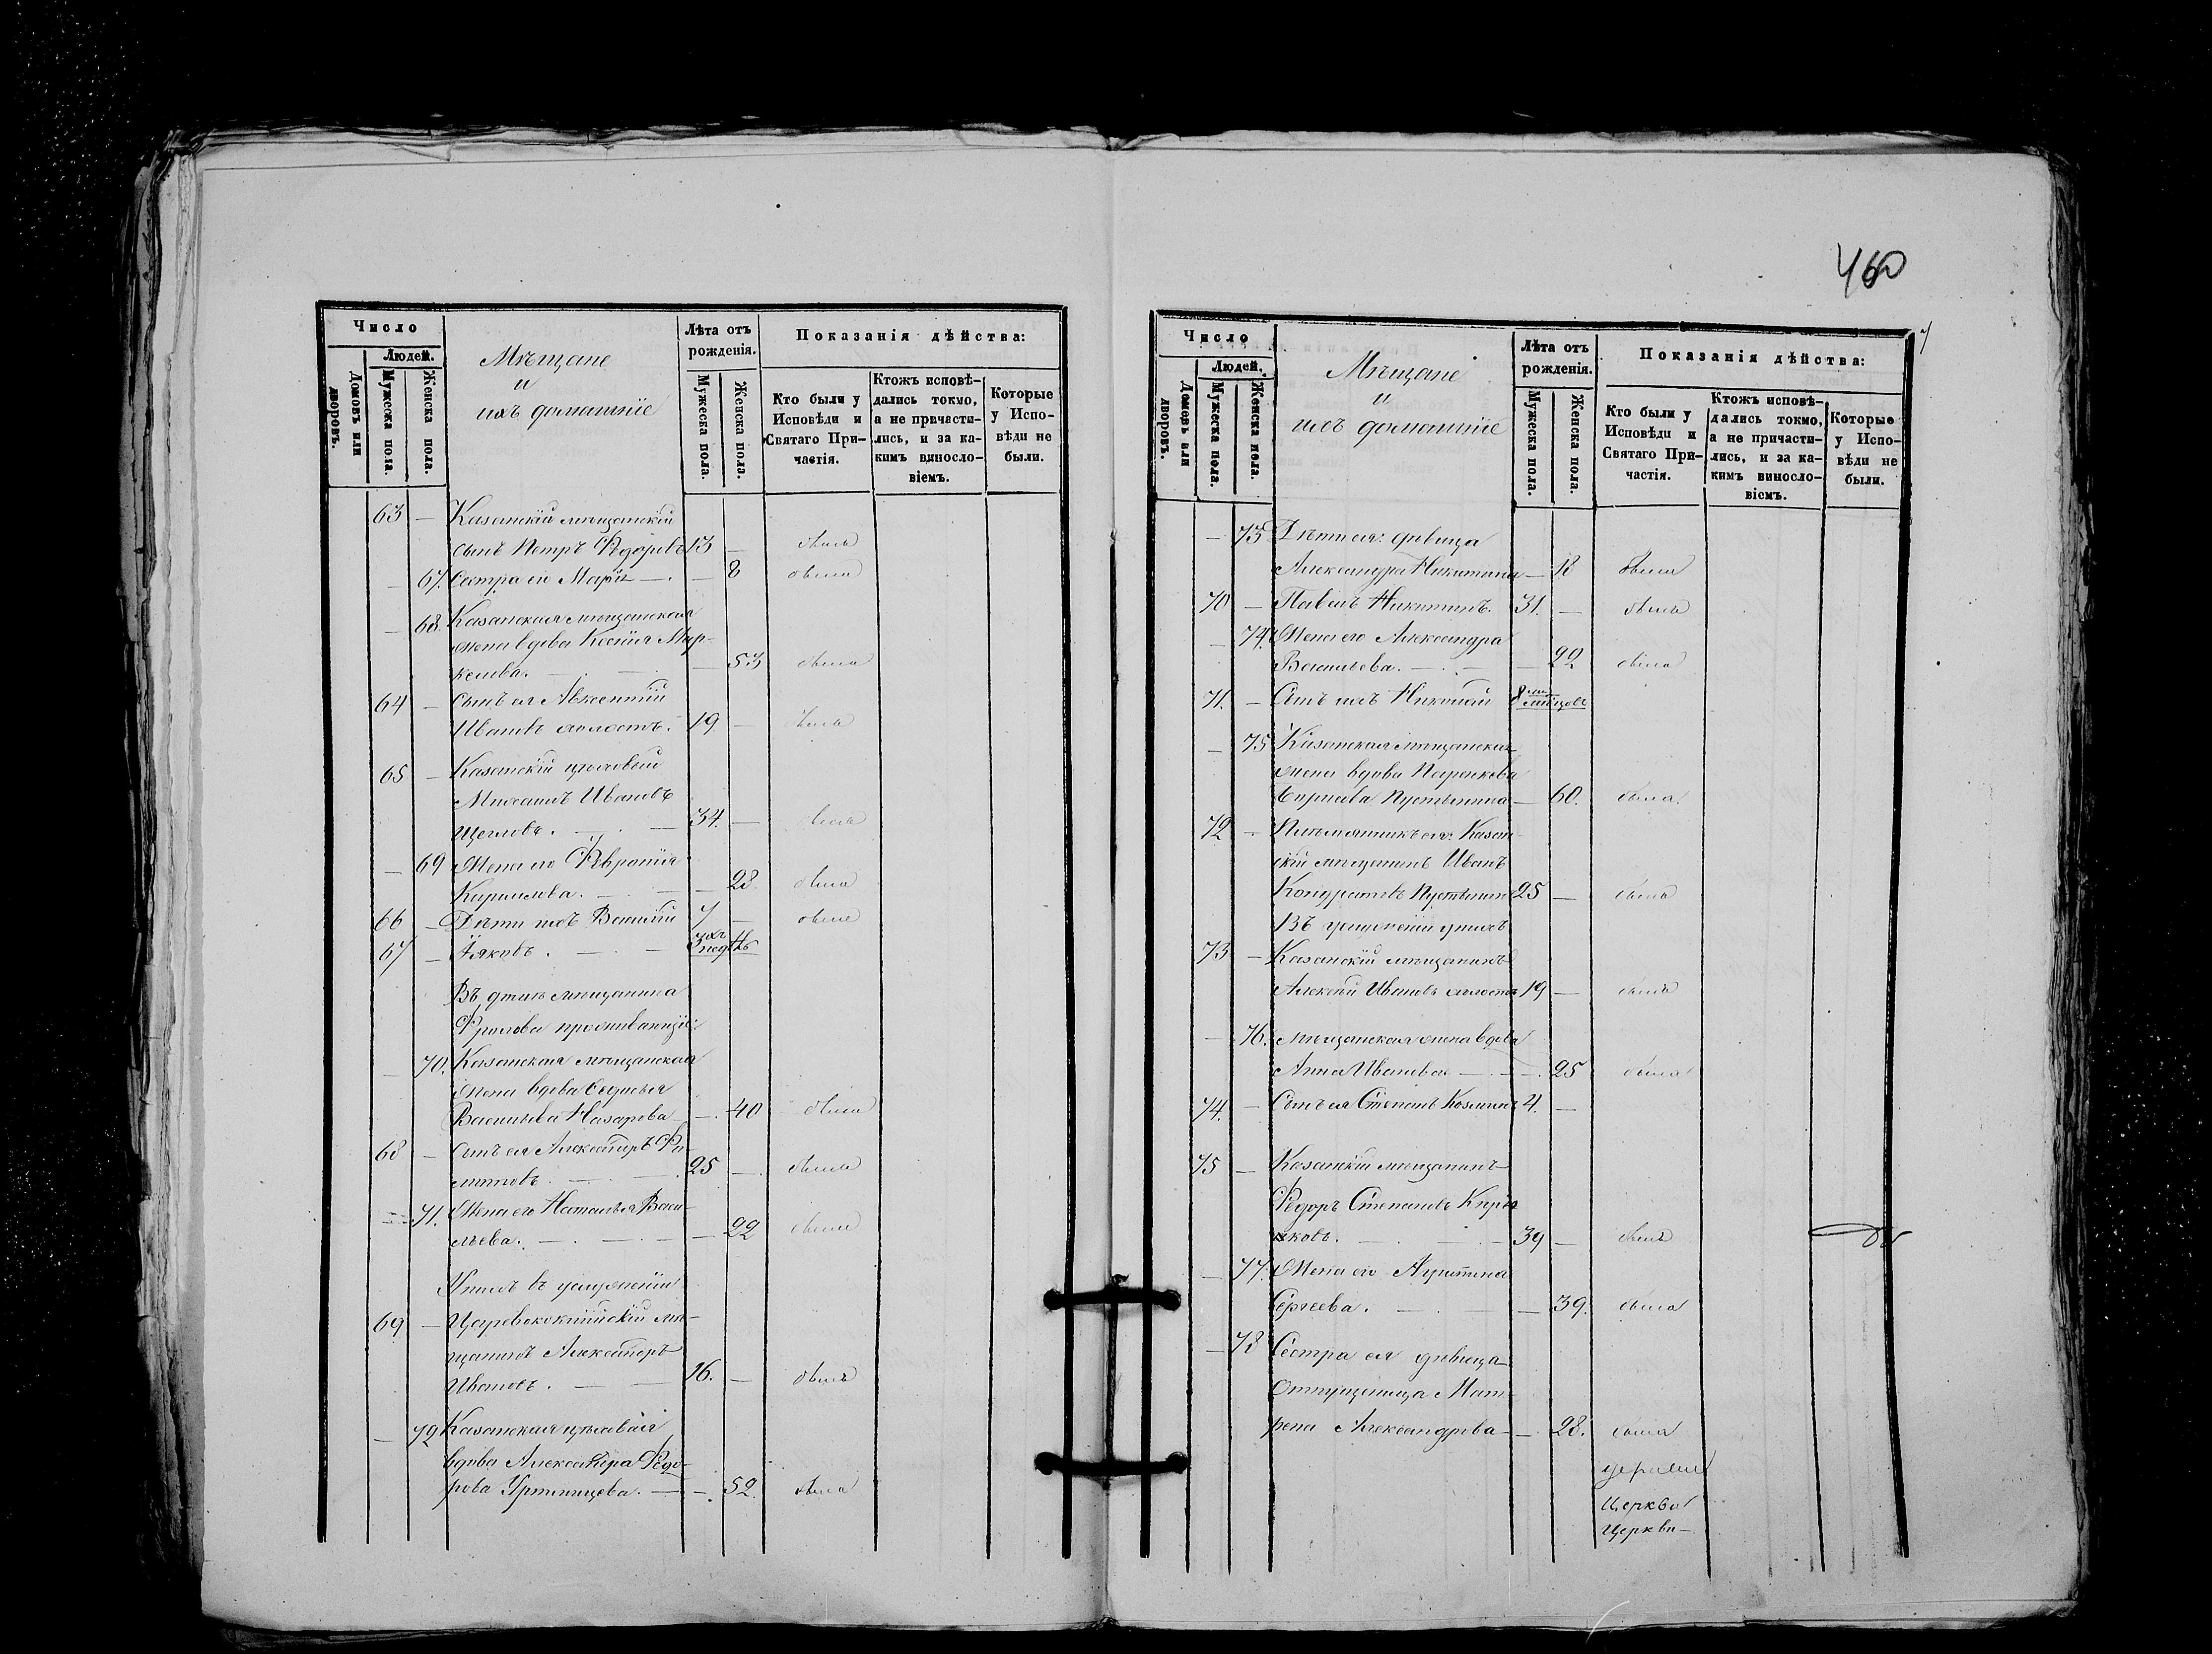 460
Число
Людей.
Домовъ или дворовъ.
Мужеска пола.
Женска пола.
Мѣщане
и
ихъ домашніе
Лѣта отъ
рожденія.
Мужеска пола.
Женска пола.
Показанія дѣйства:
Кто были у
Исповѣди и
Святаго При-
частія.
Ктожъ исповѣ-
дались токмо,
а не причасти-
лись, и за ка-
кимъ винослo-
віемъ.
Которые
у Испо-
вѣди не
были.
63 — Казанскій мѣщанскій
сынъ Петръ Ѳедоровъ 13 — былъ
— 67. Сестра его Марія — . — 8 была
— 68. Казанская мѣщанская
жена вдова Ксенія Мар-
келова. — . — — 53 была
64 — Сынъ ея Авксентій
Ивановъ холостъ. 19 — былъ
65 — Казанскій цѣховый
Михаилъ Ивановъ
Щегловъ. — . — 34. — былъ
— 69 Жена его Ѳевронія
Кирилова. — . — — 28. была
66 — Дѣти ихъ Василій 7 — былъ
67 — Іяковъ. — . — 3хъ недѣль
Въ домѣ мѣщанина
Фролова проживающіе:
— 70. Казанская мѣщанская
жена вдова
Васильева Назарова. — . 40 была
68 — Сынъ ея Александръ Фи-
липовъ. — . — . 25 — былъ
— 71. Жена его Наталья Васи-
льева. — . — . — — 22 была
Унихъ въ услуженіи
69 — Царевококшайскій мѣ-
щанинъ Александръ
Ивановъ. — — 16. — былъ
— 72 Казанская цѣховая
вдова Александра Ѳедо-
рова — — . 52. была
Число
Людей.
Домовъ или дворовъ.
Мужеска пола.
Женска пола.
Мѣщане
и
ихъ домашніе
Лѣта отъ
рожденія.
Мужеска пола.
Женска пола.
Показанія дѣйства:
Кто были у
Исповѣди и
Святаго При-
частія.
Ктожъ исповѣ-
дались токмо,
а не причасти-
лись, и за ка-
кимъ винословіемъ.
Которые
у Испо-
вѣди не
были.
— 73 Дѣти ея: дѣвица
Александра Никитина — 18 была
70 — Павелъ Никитинъ. 31. — былъ
— 74. Жена его Александра
Васильева. — . — — 22 была
71. — Сынъ ихъ Николай 8 ми мѣсяцовъ
— 75 Казанская мѣщанская
жена вдова
Пустынина — 60. была.
72 — Племянникъ ея: Казан-
скій мѣщанинъ Иванъ
Кондратьевъ Пустынинъ 25 — былъ
Въ услуженіи унихъ
73 — Казанскій мѣщанинъ
Алексѣй Ивановъ холостъ 19 — былъ
— 76. мѣщанская жена вдова
Анна Иванова — . — . 25 была
74. — Сынъ ея Степанъ Козминъ 4. —
75 — Казанскій мѣщанинъ
Ѳедоръ Степановъ Киря-
ковъ. — . — . — 39 — былъ
— 77. Жена его Агрипина
Сергеева. — . — — 39. была
— 78 Сестра ея дѣвица
отпущеница Мат-
рена Александрова — — 28. была
церкви
Церкви —